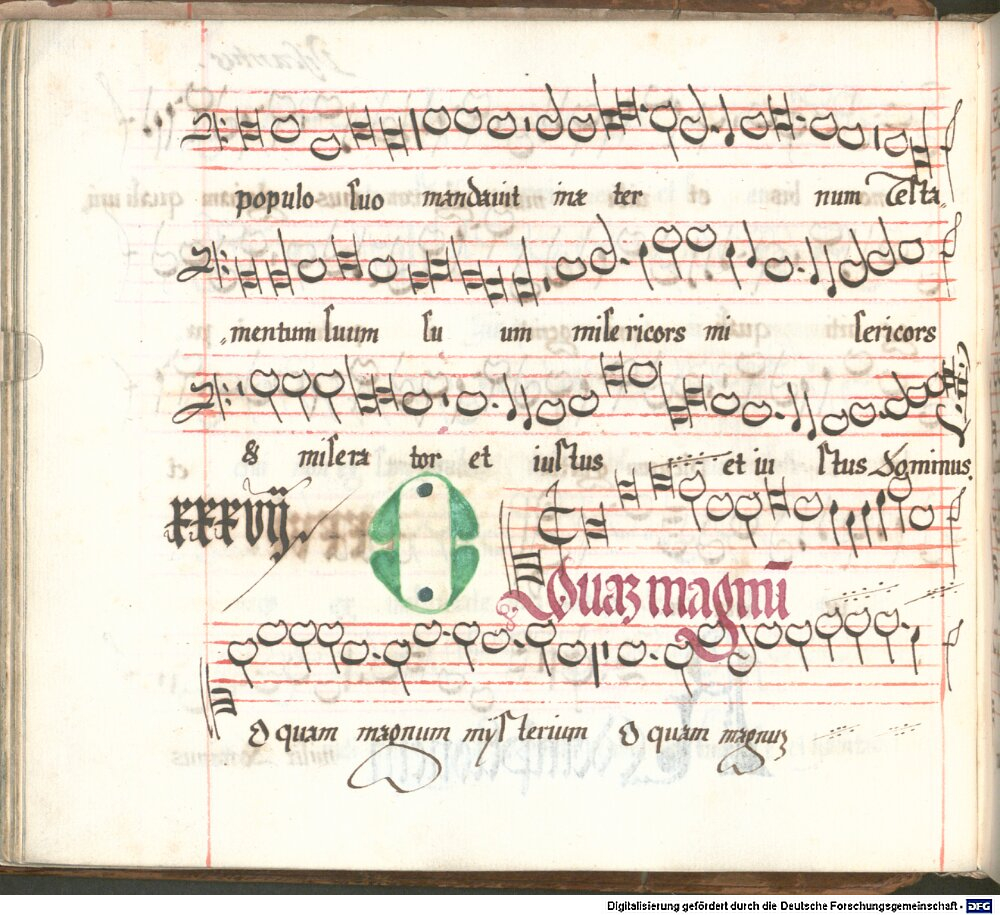 populo suo mandavit in æ ter num Testa
mentum suum su um misericors mi sericors
& misera tor et iustus et iu stus Dominus
xxxvij
O Quaz magnū
O quam magnum mysterium O quam magnuz
Digitalisierung gefördert durch die Deutsche Forschungsgemeinschaft - DFG